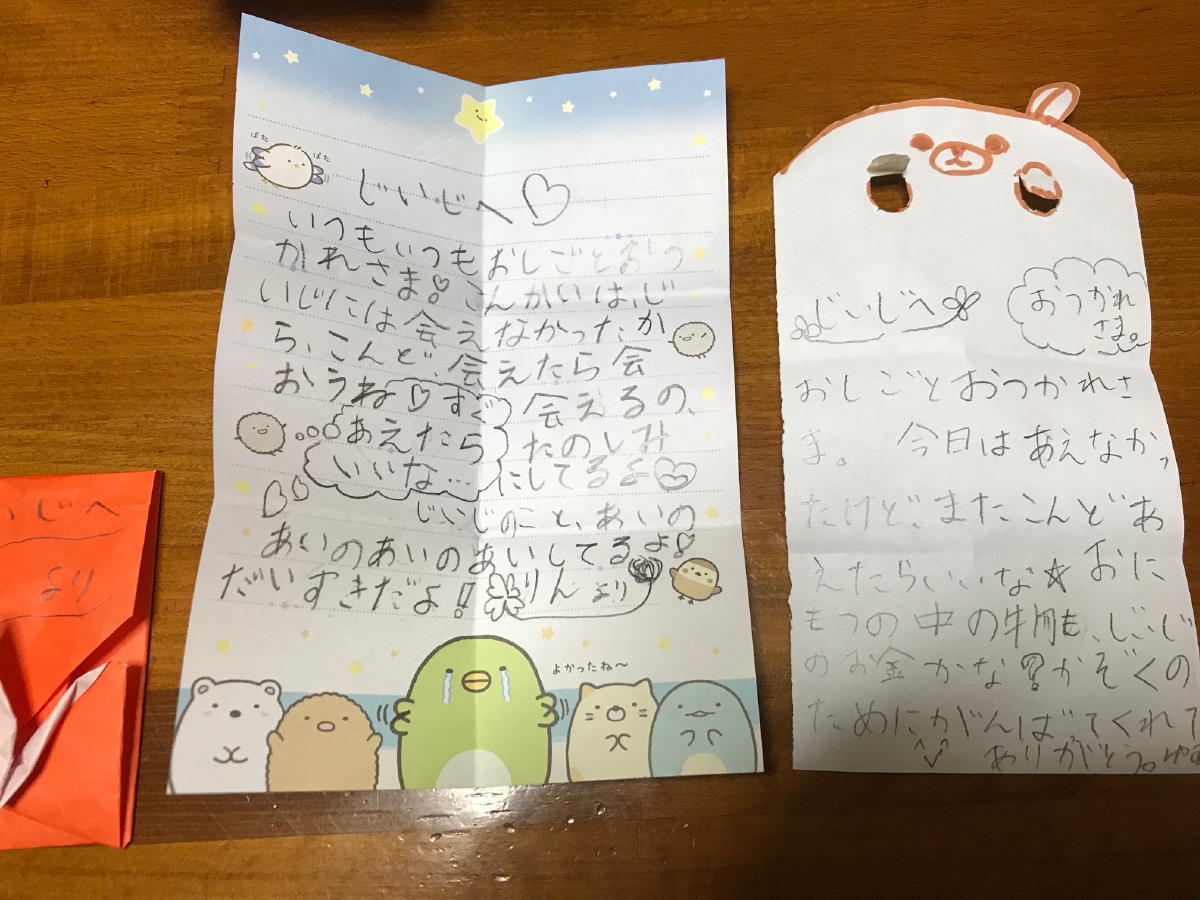 ぱた
ぱた
じいじへ
いつもいつもおしごとおつ
かれさま!こんかいは、じ
いじには会えなかったか
ら、こんど、会えたら会
おうね すぐ 会えるの、
あえたら たのしみ
いいな… にしてるよ
じいじのこと、あいの
あいのあいのあいしてるよ!
だいすきだよ!! りんより
よかったね~
じいじへ
おつかれ
さま。
おしごとおつかれさ
ま。 今日はあえなかっ
たけど、またこんどあ
えたらいいな☆ おに
もつの中の も、じいじ
のお金かな?かぞくの
ためにがんばってくれて
ありがとう。
いじへ
より